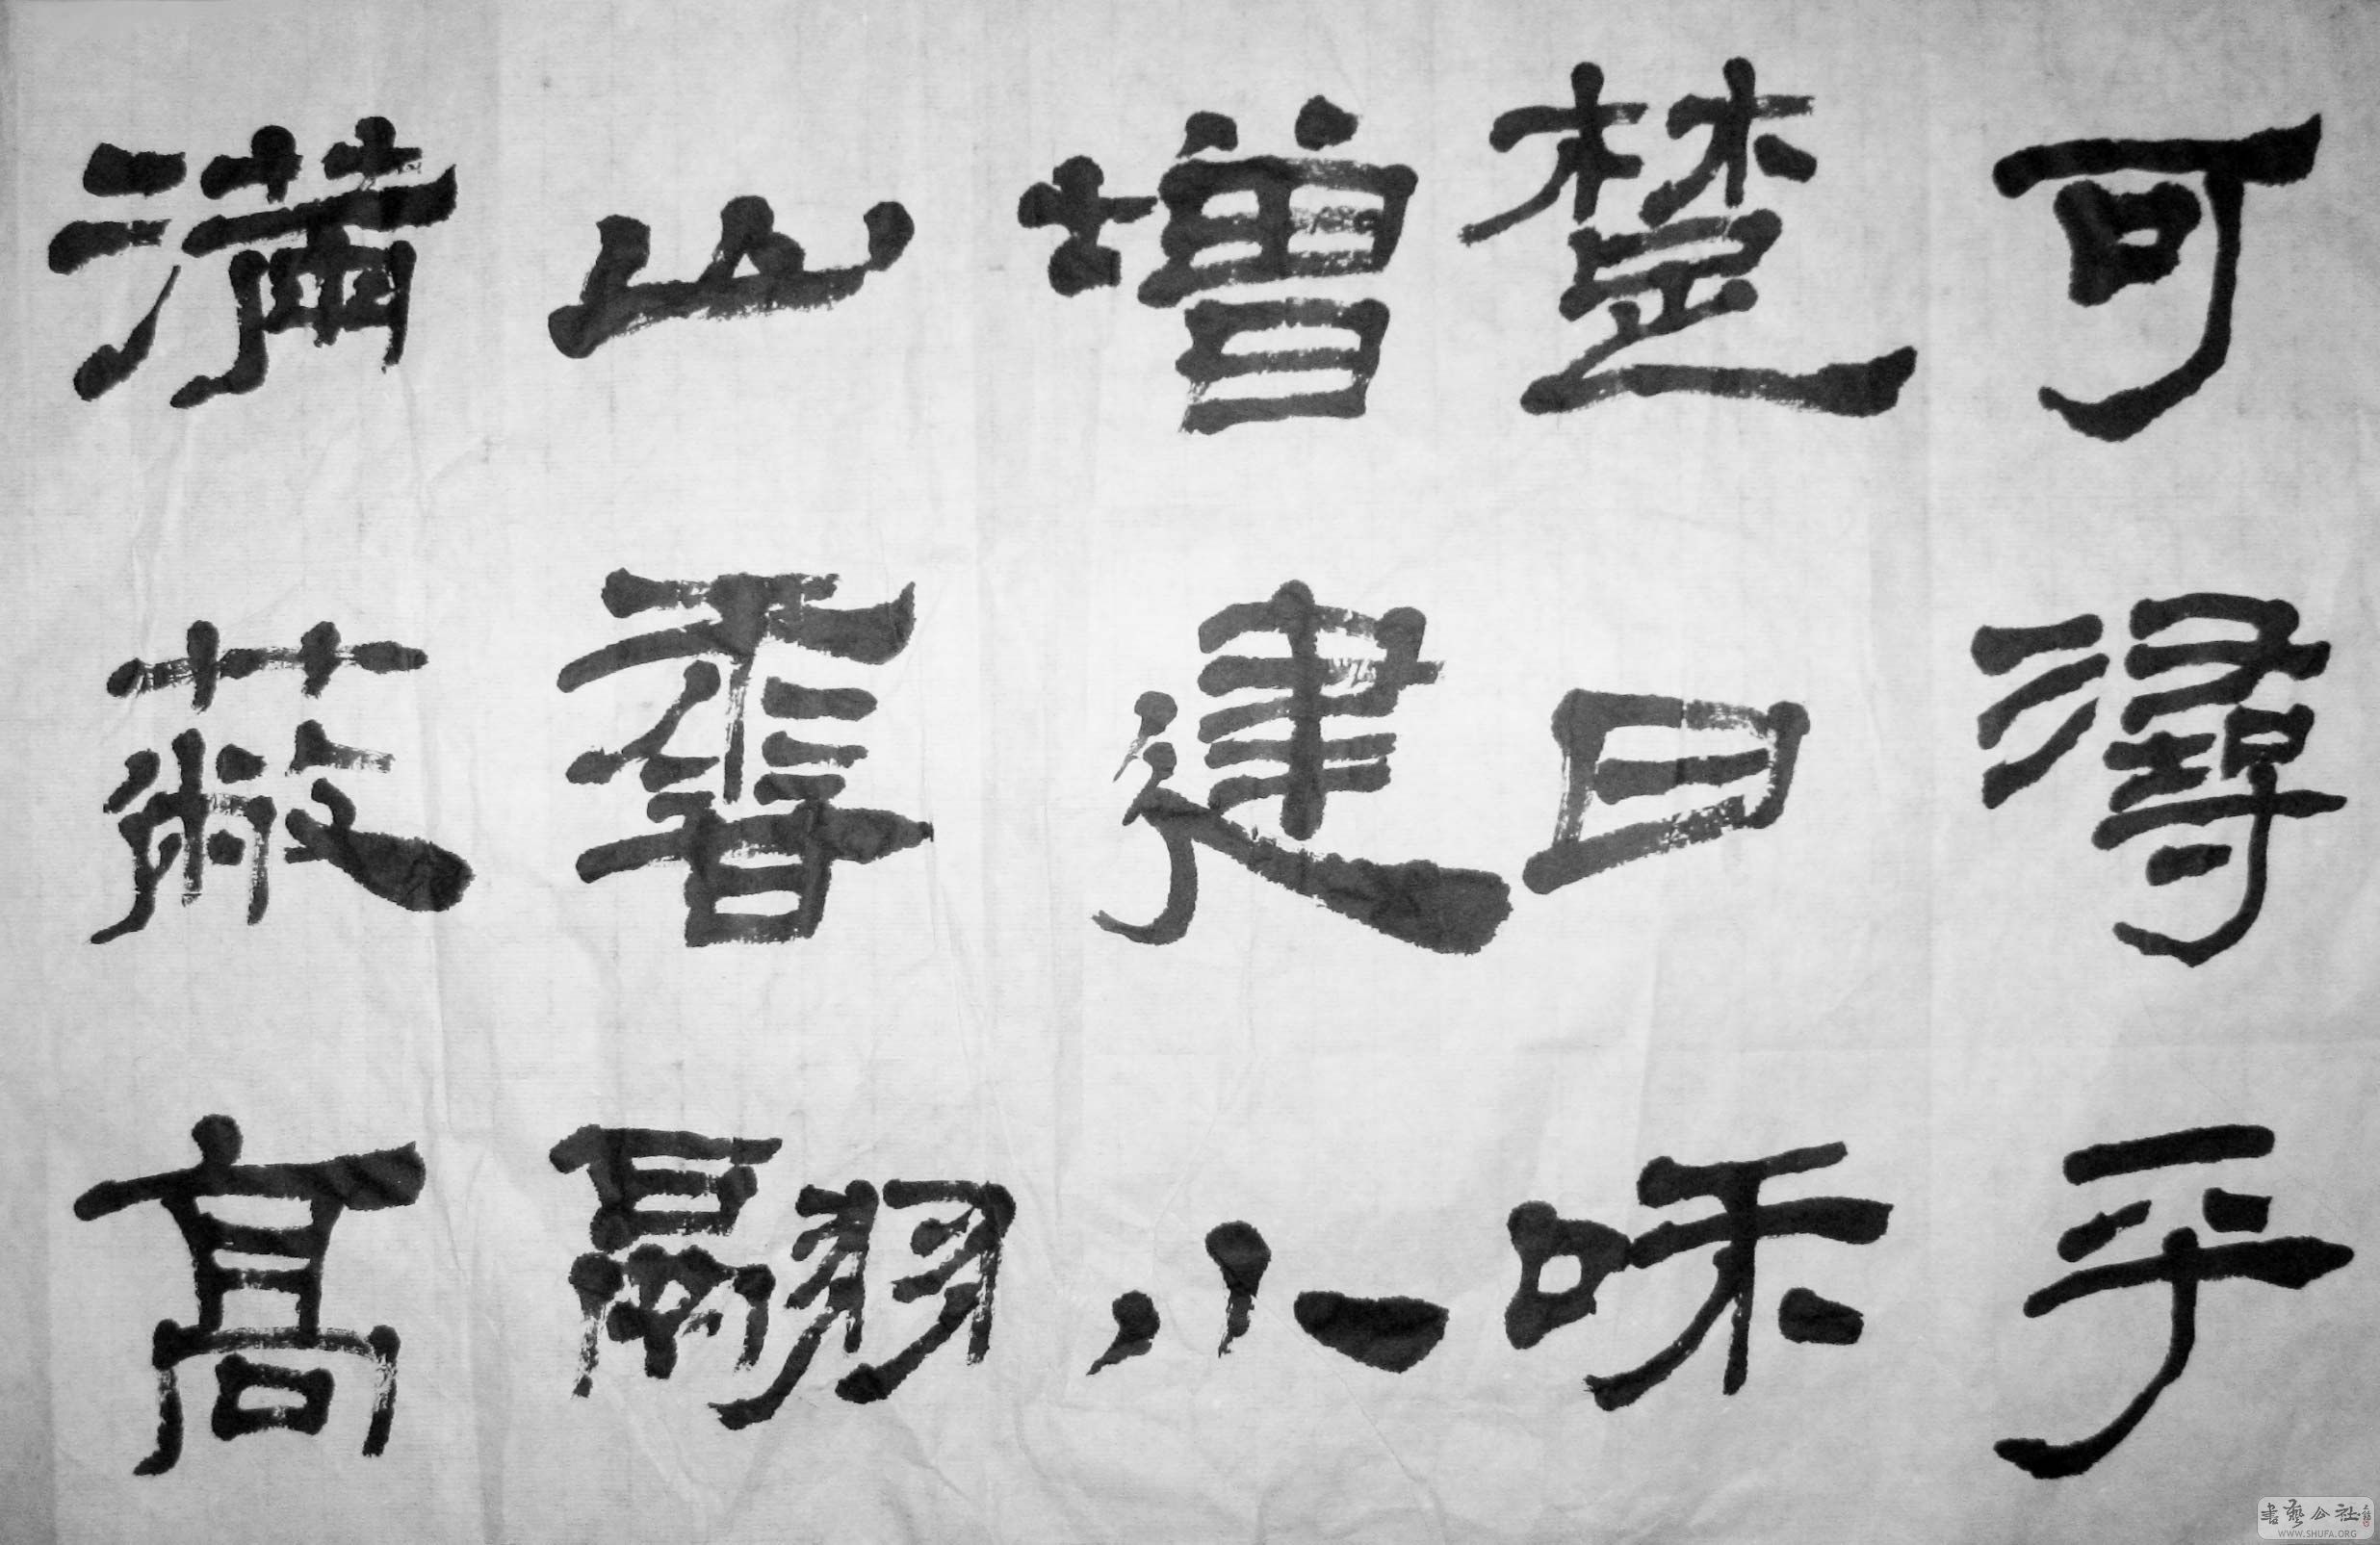 可尋乎
楚日味
增建小
山翮
滿蔽高
書藝公社
WWW.SHUFA.ORG